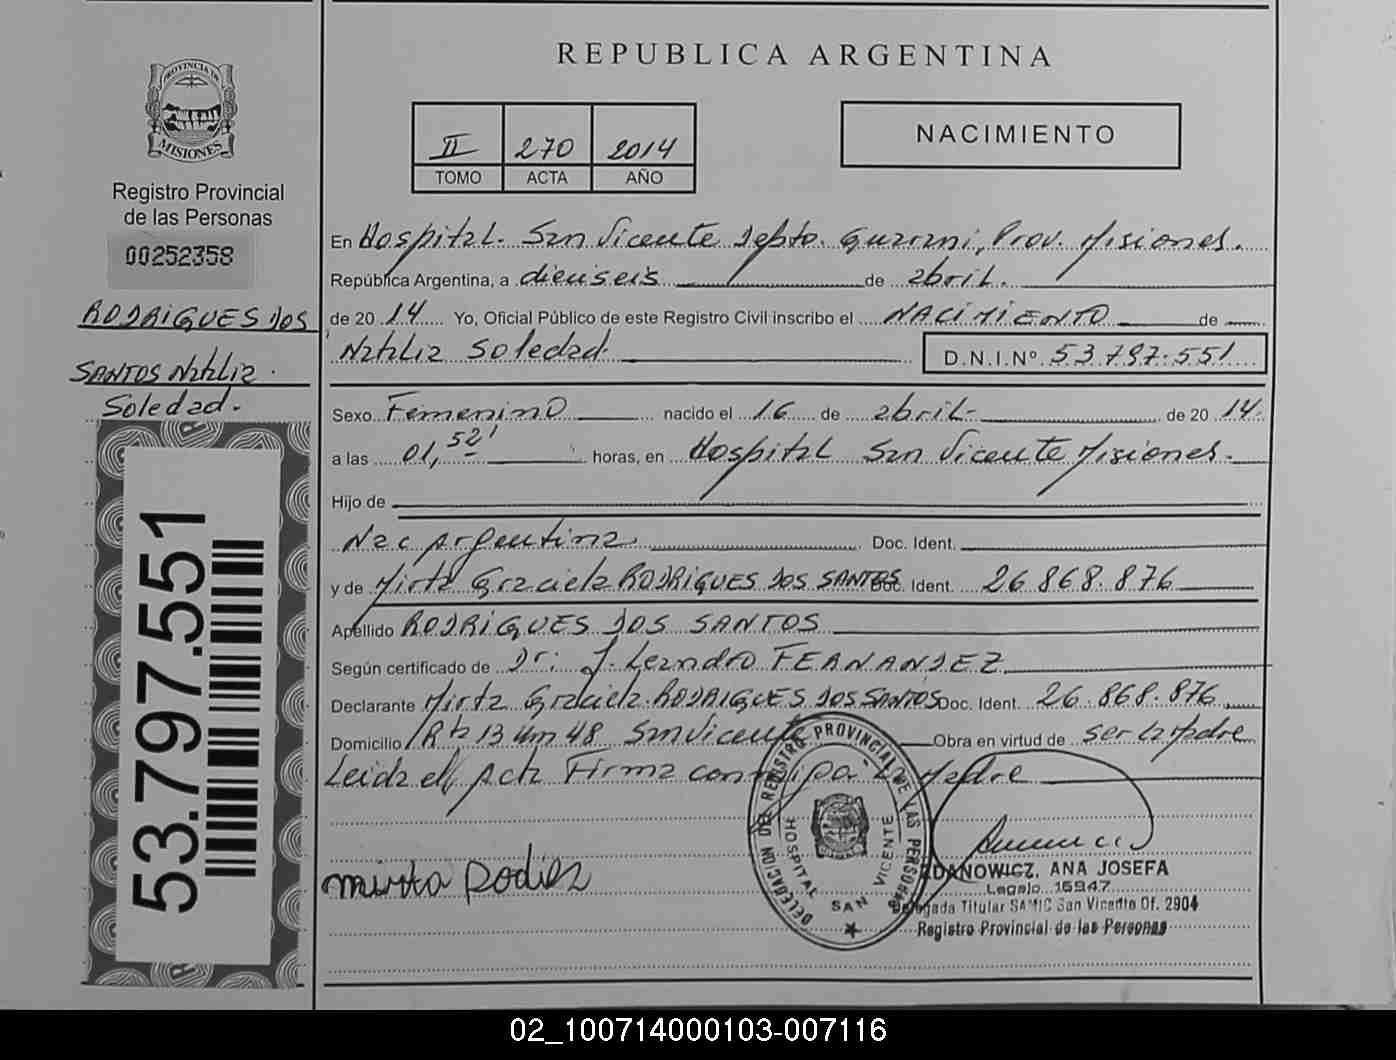 REPUBLICA ARGENTINA
PROVINCIA DE
MISIONES
Registro Provincial
de las Personas
00252358
RODRIGUES DOS
SANTOS Natalia
Soledad.
53.797.551
II 270 2014
TOMO ACTA AÑO
NACIMIENTO
En Hospital San Vicente Depto. Guarani, Prov. Misiones.
República Argentina, a dieciseis de abril.
de 2014 Yo, Oficial Público de este Registro Civil inscribo el NACIMIENTO de
Natalia Soledad. D.N.I.Nº 53.797.551
Sexo Femenino nacido el 16 de abril de 2014.
a las 01,52' horas, en Hospital San Vicente Misiones.
Hijo de
Nac Argentina Doc. Ident.
y de Mirta Graciela RODRIGUES DOS SANTOS Doc. Ident. 26.868.876
Apellido RODRIGUES DOS SANTOS
Según certificado de Dr. J. Leandro FERNANDEZ
Declarante Mirta Graciela RODRIGUES DOS SANTOS Doc. Ident. 26.868.876
Domicilio Rta 13 Km 48 San Vicente Obra en virtud de ser la Madre
Leida el Acta Firma conmigo la Madre
mirta Rodiez
DELEGACION DEL REGISTRO PROVINCIAL DE LAS PERSONAS
HOSPITAL SAN VICENTE
ZDANOWICZ, ANA JOSEFA
Legajo 15947
Delegada Titular SAMIC San Vicente Of. 2904
Registro Provincial de las Personas
02_100714000103-007116